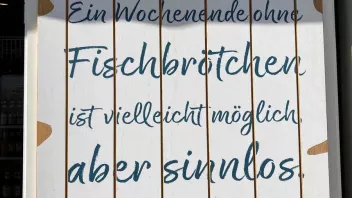 Ein Wochenende ohne
Fischbrötchen
ist vielleicht möglich,
aber sinnlos.